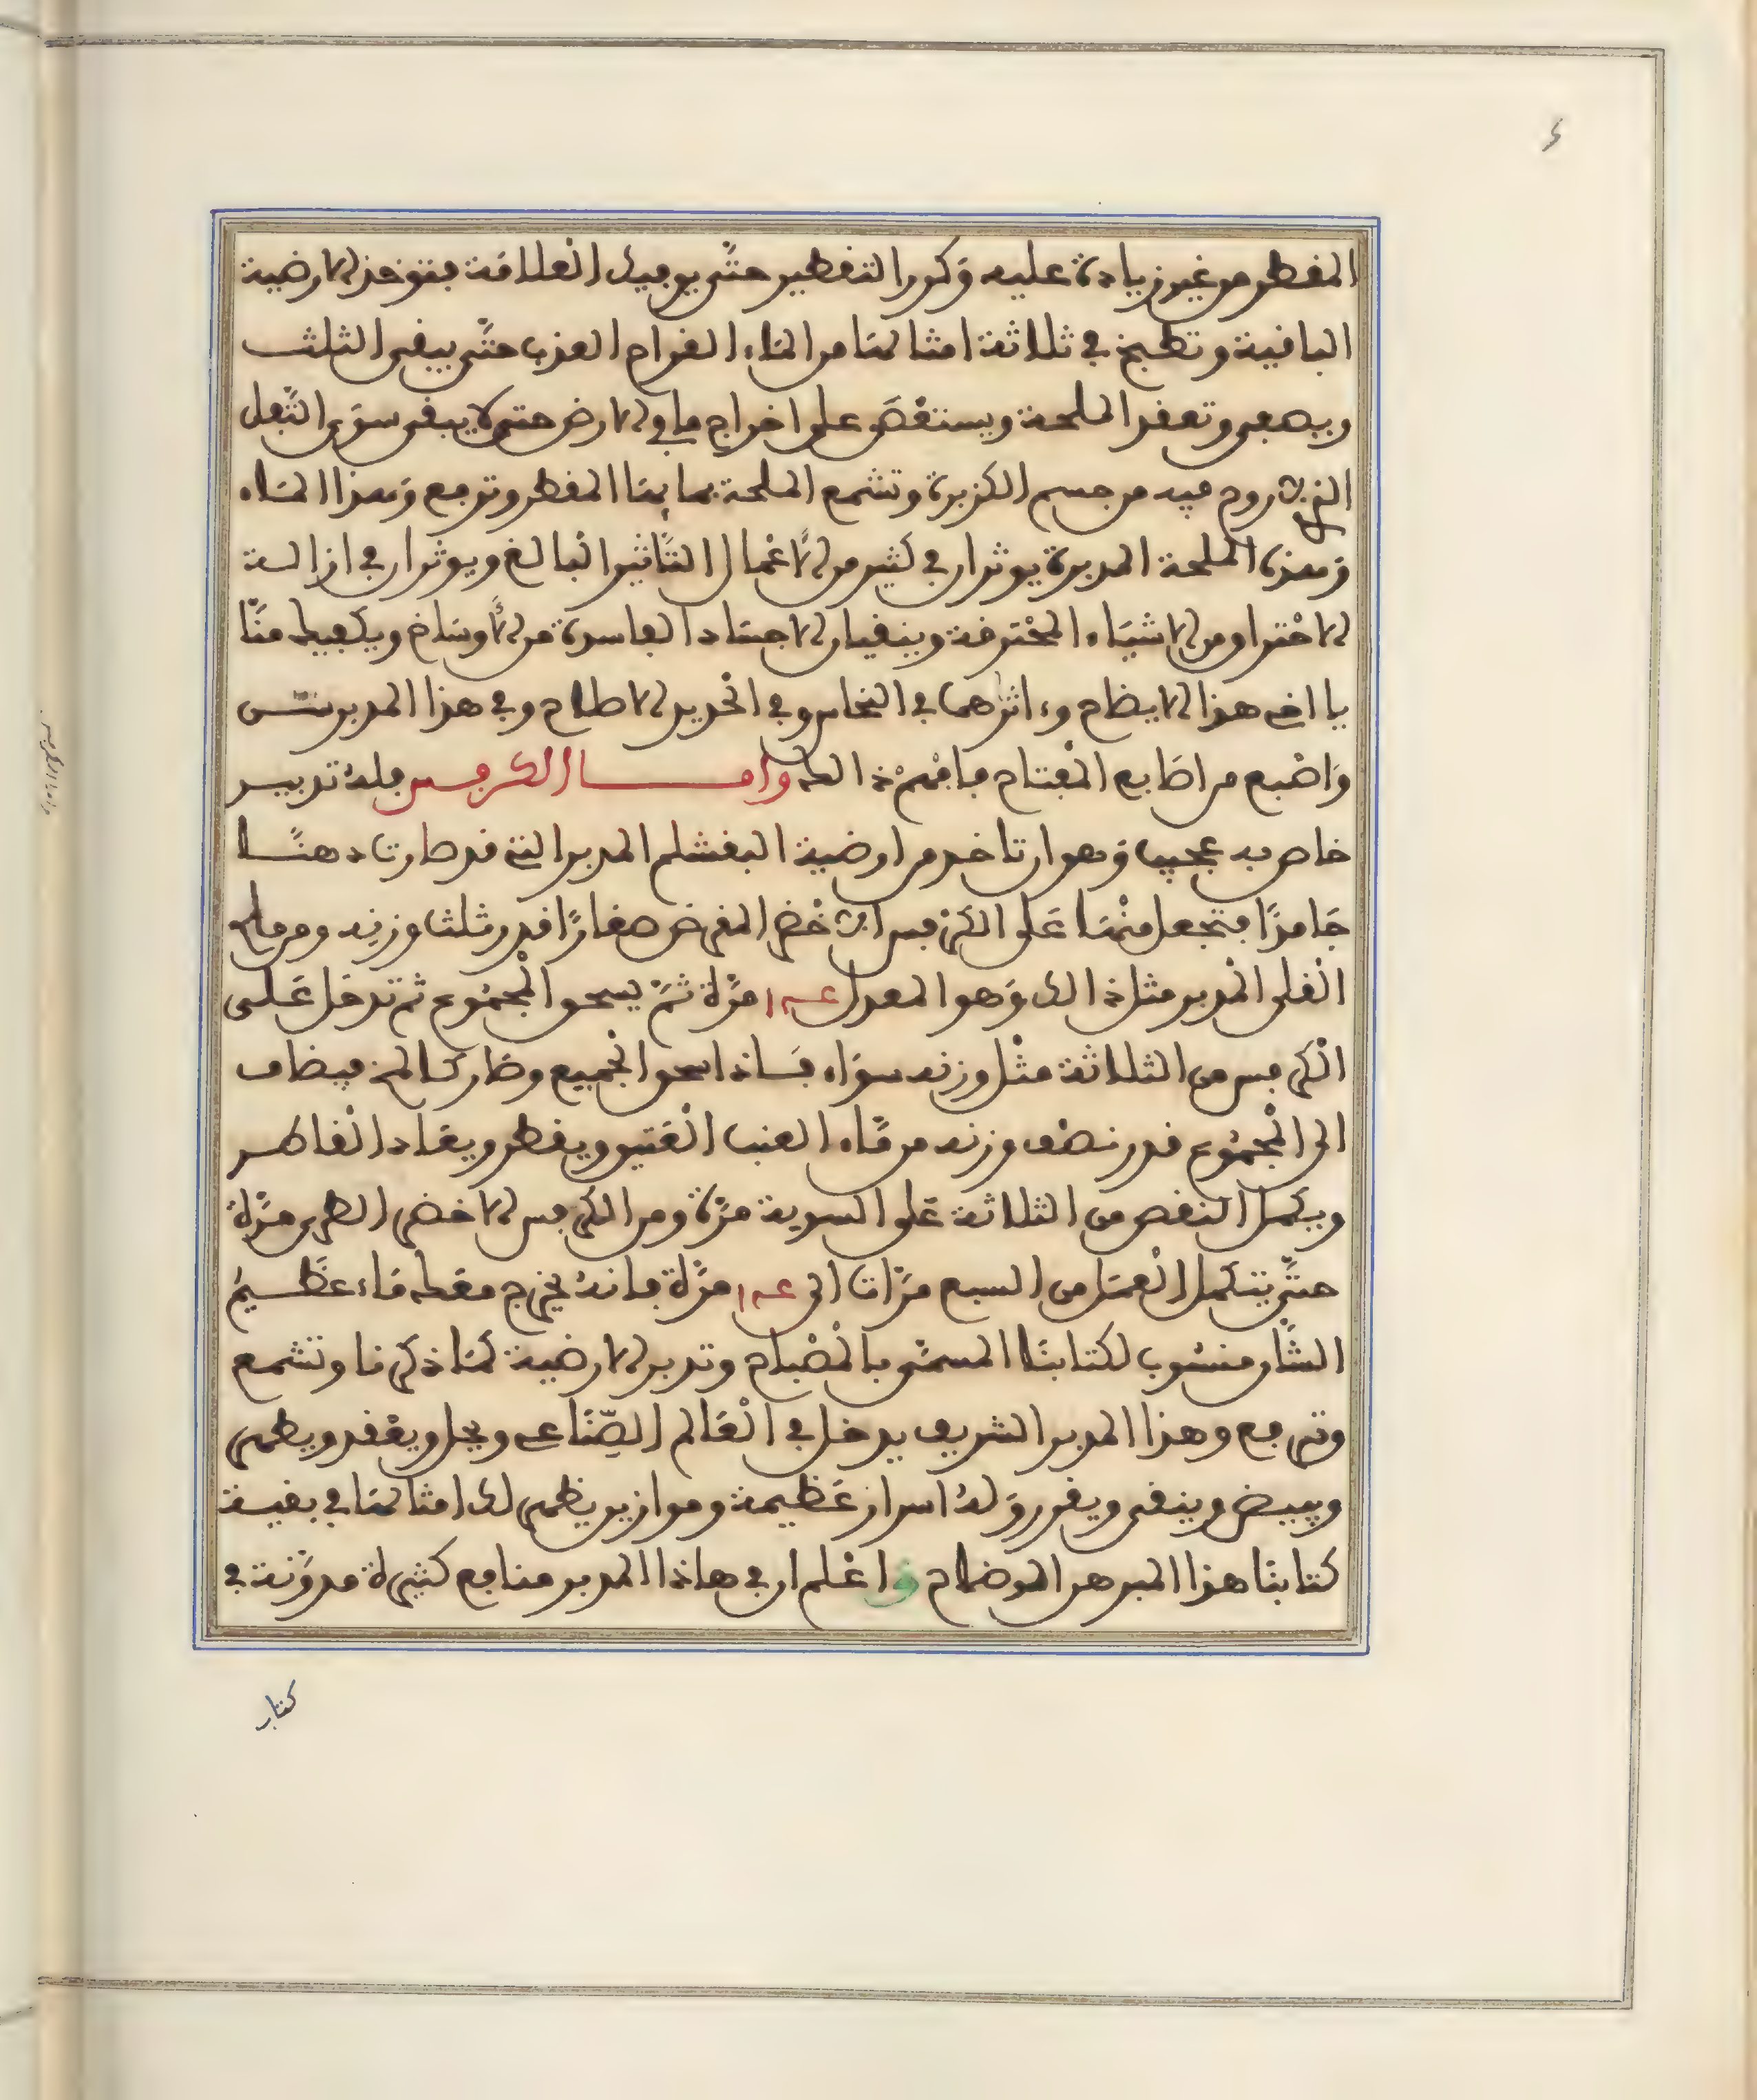 المقطر من غير زيادة عليه وكرر التقطير حتى يوفيك العلاقة فتوخذ الارضية
الباقية وتطبخ في ثلاثة امثالها من الماء القراح العذب حتى يبقى الثلث
ويصفى وتعقد الملحة ويستقصى على اخراج ما في الارض حتى لا يبقى سوى الثفل
الذي لا روح فيه من جسم الكزبرة وتشمع الملحة بمايها المقطر وترفع وهذا الماء
وهذه الملحة المدبرة يوثران في كثير من الاعمال التأثير البالغ ويوثران في ازالة
الاحتراق من الاشياء المحترقة وينقيان الاجساد الفاسدة من الأوساخ ويكفيك منا
يا اخي هذا الايضاح واثرهما في النحاس وفي الحديد الاصلاح وفي هذا المدبر سر
واضبع من اصابع المفتاح فافهم ذالك واما الكرفس فله تدبير
خاص به عجيب وهو ان تاخذ من ارضية البقشلم المدبر التي قد صارت دهنا
جامدا فتجعل منها على الكرفس الاخضر المقرض صغارا قدر ثلث وزنه ومن ملح
القلى المدبر مثل ذالك وهو المعدل عـ١ مرة ثم يسحق المجموع ثم تدخل على
الكرفس من الثلاثة مثل وزنه سواء فاذا سحق الجميع وصار كالمخ فيضاف
الى المجموع قدر نصف وزنه من ماء العنب العتيق ويقطر ويعاد القاطر
ويكمل النقص من الثلاثة على السوية مرة ومن الكرفس الاخضر الطري مرة
حتى يتكمل العمل من السبع مرات الى عـ١ مرة فانه يخرج مقطه ماء عظيم
الشان منسوب لكتابنا المسمى بالمصباح وتدبر الارضية كما ذكرنا وتشمع
وترفع وهذا المدبر الشريف يدخل في العالم الصناعي ويحل ويعقد ويطهر
ويبيض وينقي ويقرر وله اسرار عظيمة وموازين يظهر لك امثالها في بقية
كتابنا هذا البرهن الموضاح واعلم ان في هاذا المدبر منافع كثيرة مدونة في
كتاب